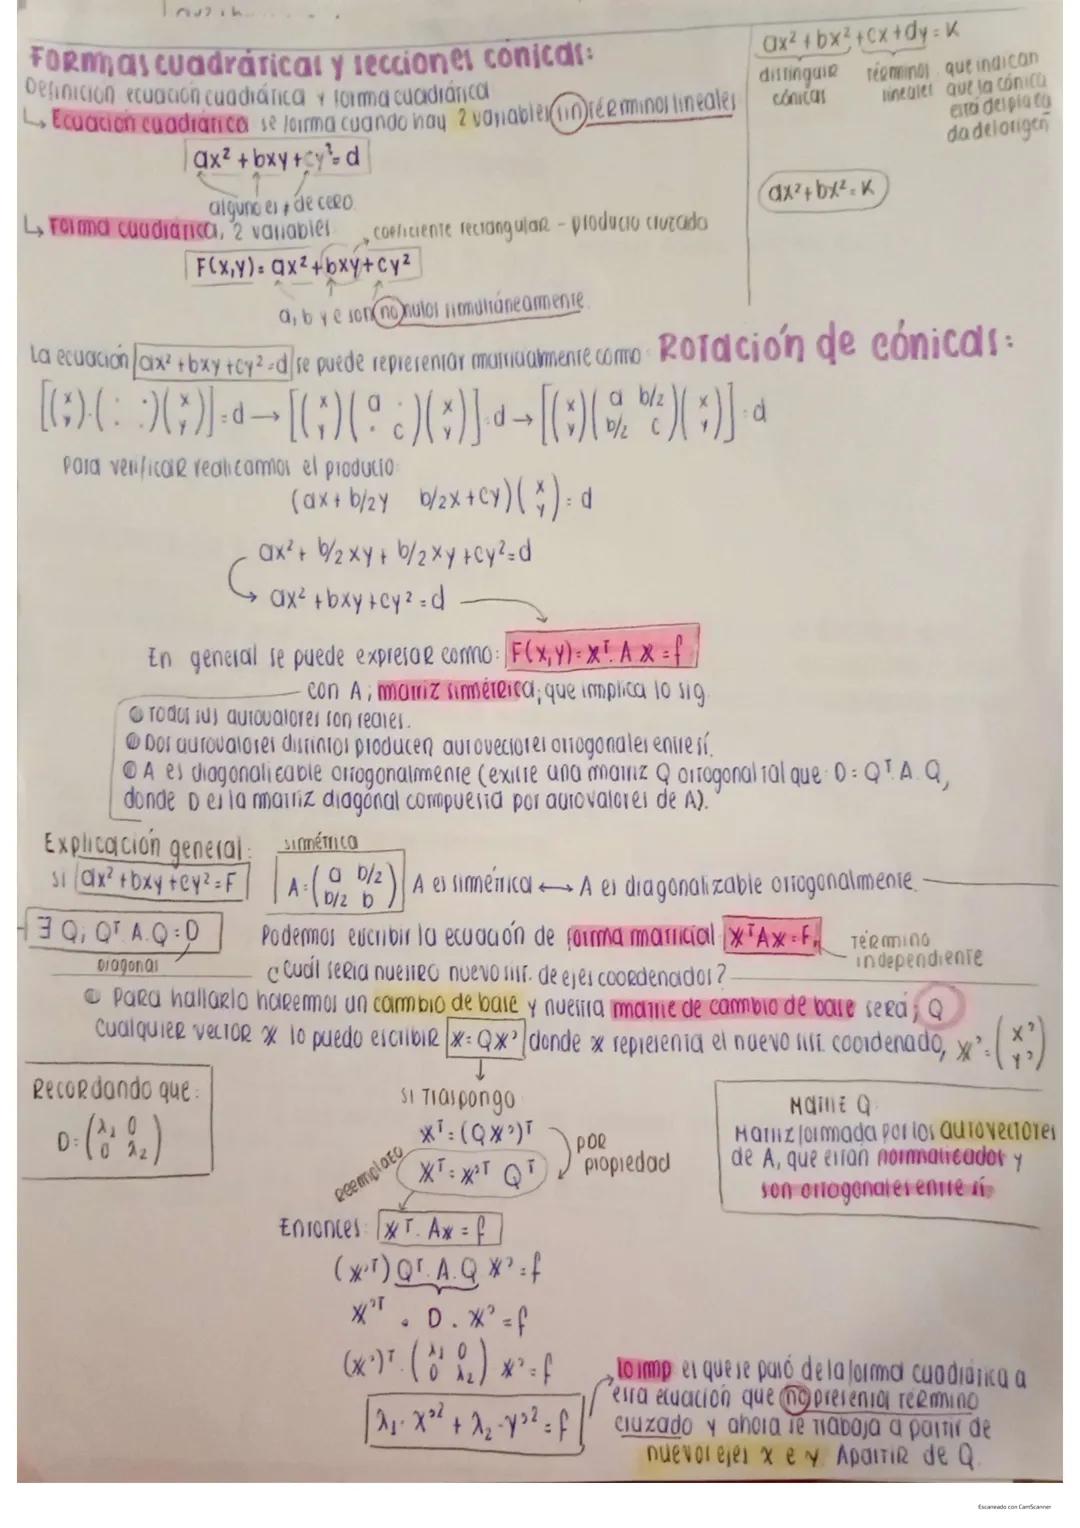 Formas cuadráticas y secciones cónicas:
Definición ecuación cuadrática y forma cuadrática
↳ Ecuación cuadrática se forma cuando hay 2 variables sin términos lineales
ax² + bxy + cy² = d
alguno es ≠ de cero.
↳ Forma cuadrática, 2 variables
coeficiente rectangular - producto cruzado
F(x,y) = ax² + bxy + cy²
a, b y c son no nulos simultáneamente.
ax² + bx² + cx + dy = K
distingue cónicas
términos lineales que indican que la cónica está desplazada del origen
ax² + bx² = K
La ecuación ax² + bxy + cy² = d se puede representar matricialmente como
Rotación de cónicas:
[(x y)·(· ·)(x y)] = d → [(x y)(a · · c)(x y)] = d → [(x y)(a b/2 b/2 c)(x y)] = d
Para verificar realizamos el producto:
(ax + b/2y b/2x + cy)(x y) = d
ax² + b/2xy + b/2xy + cy² = d
ax² + bxy + cy² = d
En general se puede expresar como: F(x,y) = xᵀ. A x = f
con A; matriz simétrica; que implica lo sig.
Todos sus autovalores son reales.
Dos autovalores distintos producen autovectores ortogonales entre sí.
A es diagonalizable ortogonalmente (existe una matriz Q ortogonal tal que: D = Qᵀ. A. Q,
donde D es la matriz diagonal compuesta por autovalores de A).
Explicación general:
simétrica
si ax² + bxy + cy² = F
A = (a b/2 b/2 b) A es simétrica ⟷ A es diagonalizable ortogonalmente.
∃ Q; Qᵀ. A. Q = D
diagonal
Podemos escribir la ecuación de forma matricial xᵀAx = F,
Término independiente
¿Cuál sería nuestro nuevo sist. de ejes coordenados?
Para hallarlo haremos un cambio de base y nuestra matriz de cambio de base será; Q
Cualquier vector x lo puedo escribir x = Qx' donde x representa el nuevo sist. coordenado, x' = (x' y')
Recordando que:
D = (λ₁ 0 0 λ₂)
Si Traspongo
xᵀ = (Qx')ᵀ
xᵀ = x'ᵀ Qᵀ
por propiedad
Reemplazo
Matriz Q
Matriz formada por los autovectores
de A, que están normalizados y
son ortogonales entre sí.
Entonces: xᵀ. Ax = f
(x'ᵀ) Qᵀ. A. Q x' = f
x'ᵀ . D . x' = f
(x')ᵀ. (λ₁ 0 0 λ₂) x' = f
λ₁. x'² + λ₂. y'² = f
lo imp es que se pasó de la forma cuadrática a
esta ecuación que no presenta término
cruzado y ahora se trabaja a partir de
nuevos ejes x e y. Apartir de Q.
Escaneado con CamScanner